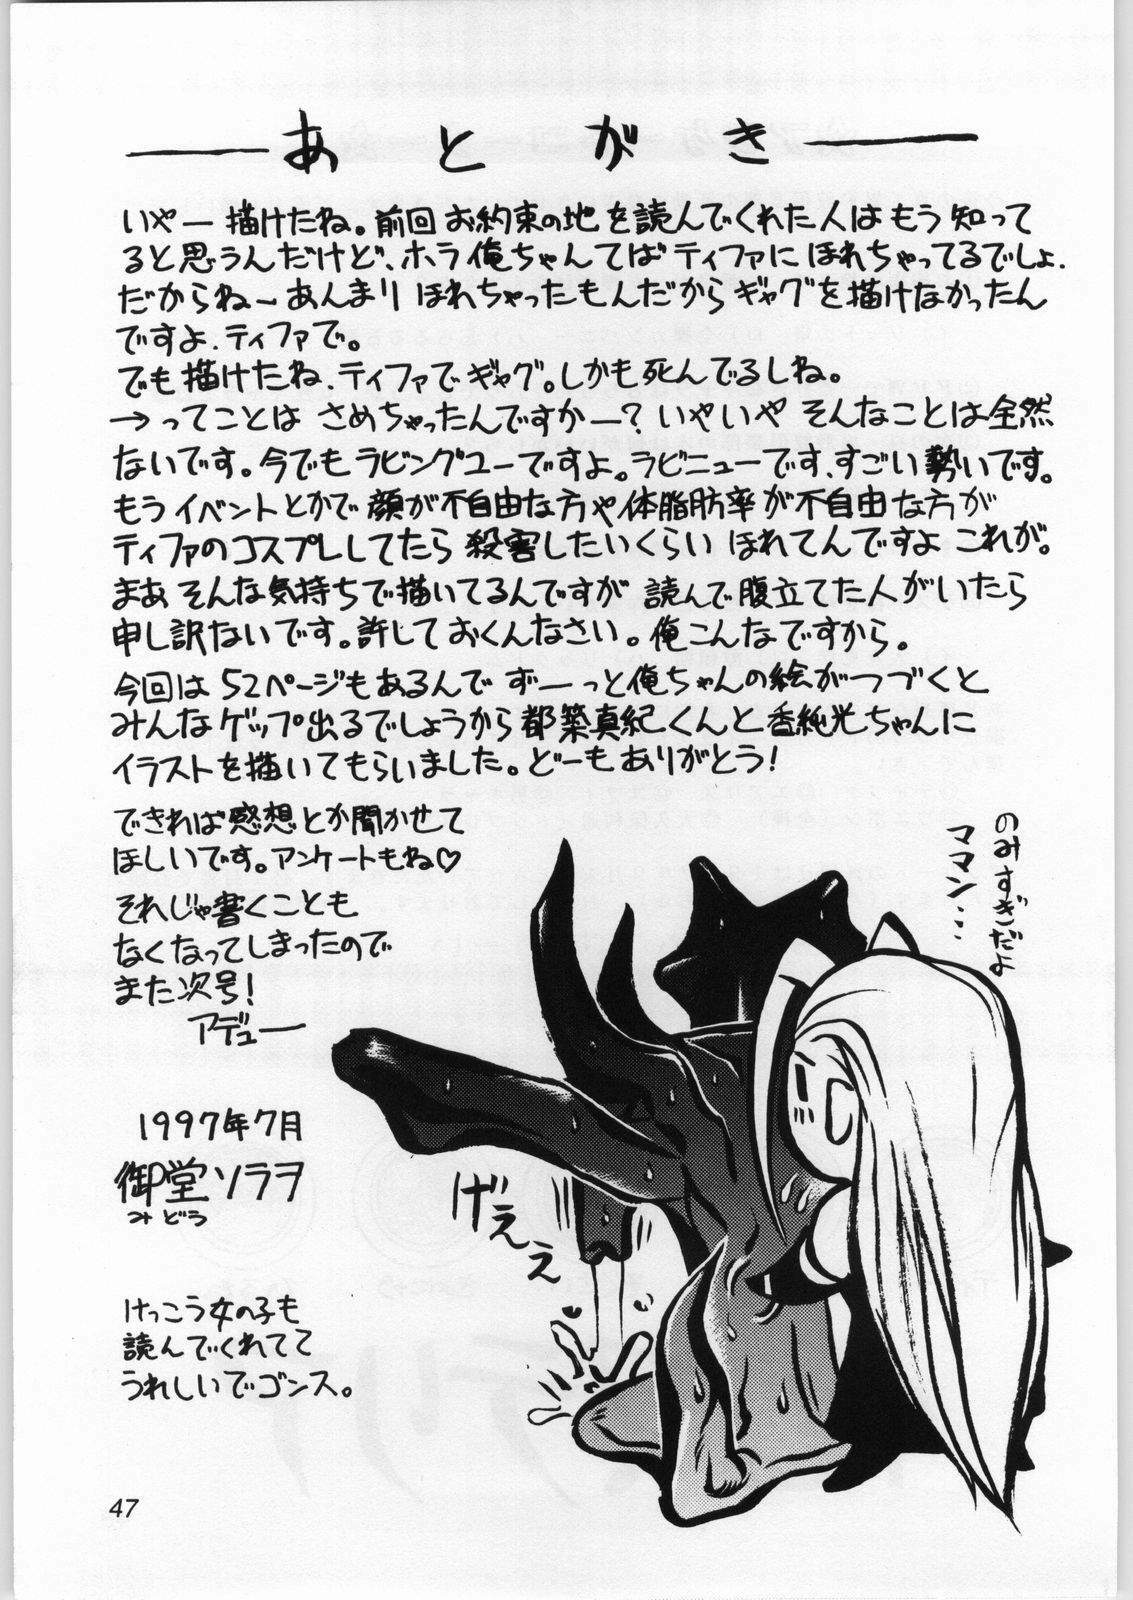 あとがき
いやー描けたね。前回お約束の地を読んでくれた人はもう知って
ると思うんだけど、ホラ俺ちゃんてばティファにほれちゃってるでしょ.
だからねーあんまりほれちゃったもんだからギャグを描けなかったん
ですよ.ティファで。
でも描けたね、ティファでギャグ。しかも死んでるしね。
→ってことは さめちゃったんですかー?いやいや そんなことは全然
ないです。今でもラビングユーですよ。ラビニューです、すごい勢いです。
もうイベントとかで顔が不自由な方や体脂肪率が不自由な方が
ティファのコスプレしてたら殺害したいくらい ほれてんですよ これが。
まあそんな気持ちで描いてるんですが 読んで腹立てた人がいたら
申し訳ないです。許しておくんなさい。俺こんなですから。
今回は52ページもあるんで ずーっと俺ちゃんの絵がつづくと
みんなゲップ出るでしょうから都築真紀くんと香純光ちゃんに
イラストを描いてもらいました。どーもありがとう!
できれば感想とか聞かせて
ほしいです。アンケートもね♡
それじゃ書くことも
なくなってしまったので
また次号!
アデュー
1997年7月
御堂ソラヲ
みどう
けっこう女の子も
読んでくれてて
うれしいでゴンス。
のみすぎだよ
ママン…
げええぇ
47